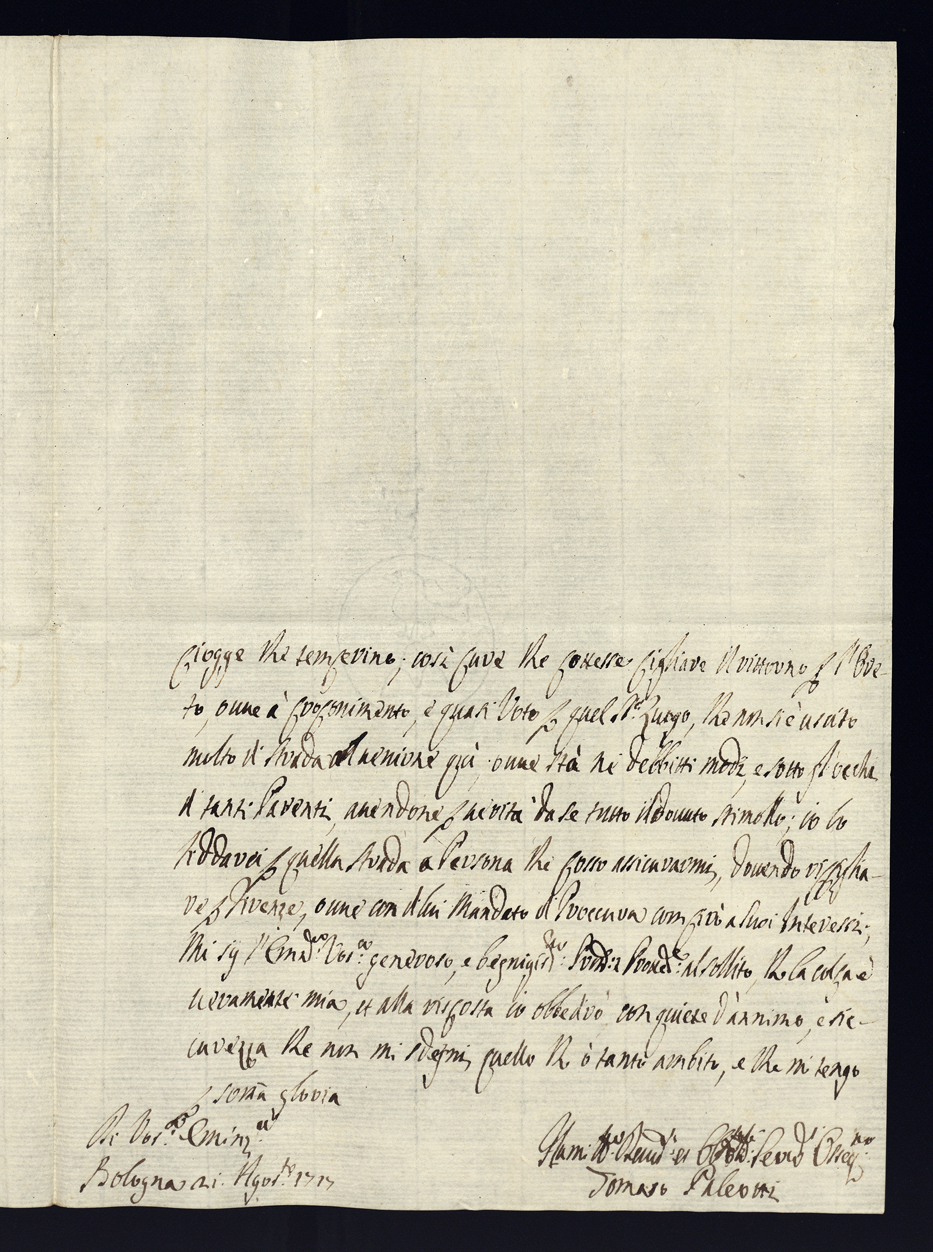 piogge che sempre vino; così pure che potesse pigliare il ritorno p l'Ore-
to, oue à proponimento, e quasi Voto p quel Sto Luogo, che non si è uscito
molto di strada al uenire quì; oue stà ne debbiti modi, e sotto gl'occhi
di tanti Parenti, auendone p uerità da se tutto il douuto stimollo; io lo
p quella strada a Persona che posso assicurarmi, douendo ripiglia-
re p Firenze, oue con di lui Mandato di Proccura compirò a suoi Interessi;
Mi sij l'Emza Vosa generoso, e al sollito, che la colpa è
ueramente mia, et alla risposta io obbedirò con quiete d'annimo, e sic-
curezza che non mi sdegni quello ch ò tanto ambito, e che mi tengo
p somā gloria
Di Vosa Eminza
Bologna Agosto 1717
Humilmo et Oblmo Seruo Osseqmo
Tomaso Paleotti